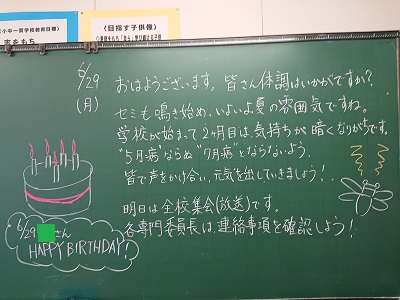 小中一貫学校教育目標
〈目指す子供像〉
6/29
(月)
おはようございます。皆さん体調はいかがですか?
セミも鳴き始め、いよいよ夏の雰囲気ですね。
学校が始まって2ヶ月目は、気持ちが暗くなりがちです。
"5月病"ならぬ"7月病"とならないよう、
皆で声をかけ合い、元気を出していきましょう!
明日は全校集会(放送)です。
各専門委員長は、連絡事項を確認しよう!
6/29 さん
HAPPY BIRTHDAY!